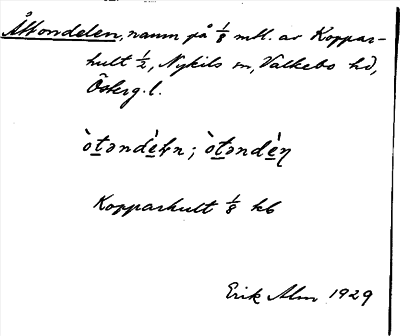 Åttondelen, namn på 1/8 mtl. av Koppar-
hult 1/2, Nykils sn, Valkebo hd,
Österg. l.
òtəndèɫn; òtəndèn
Kopparhult 1/8 kb
Erik Alm 1929